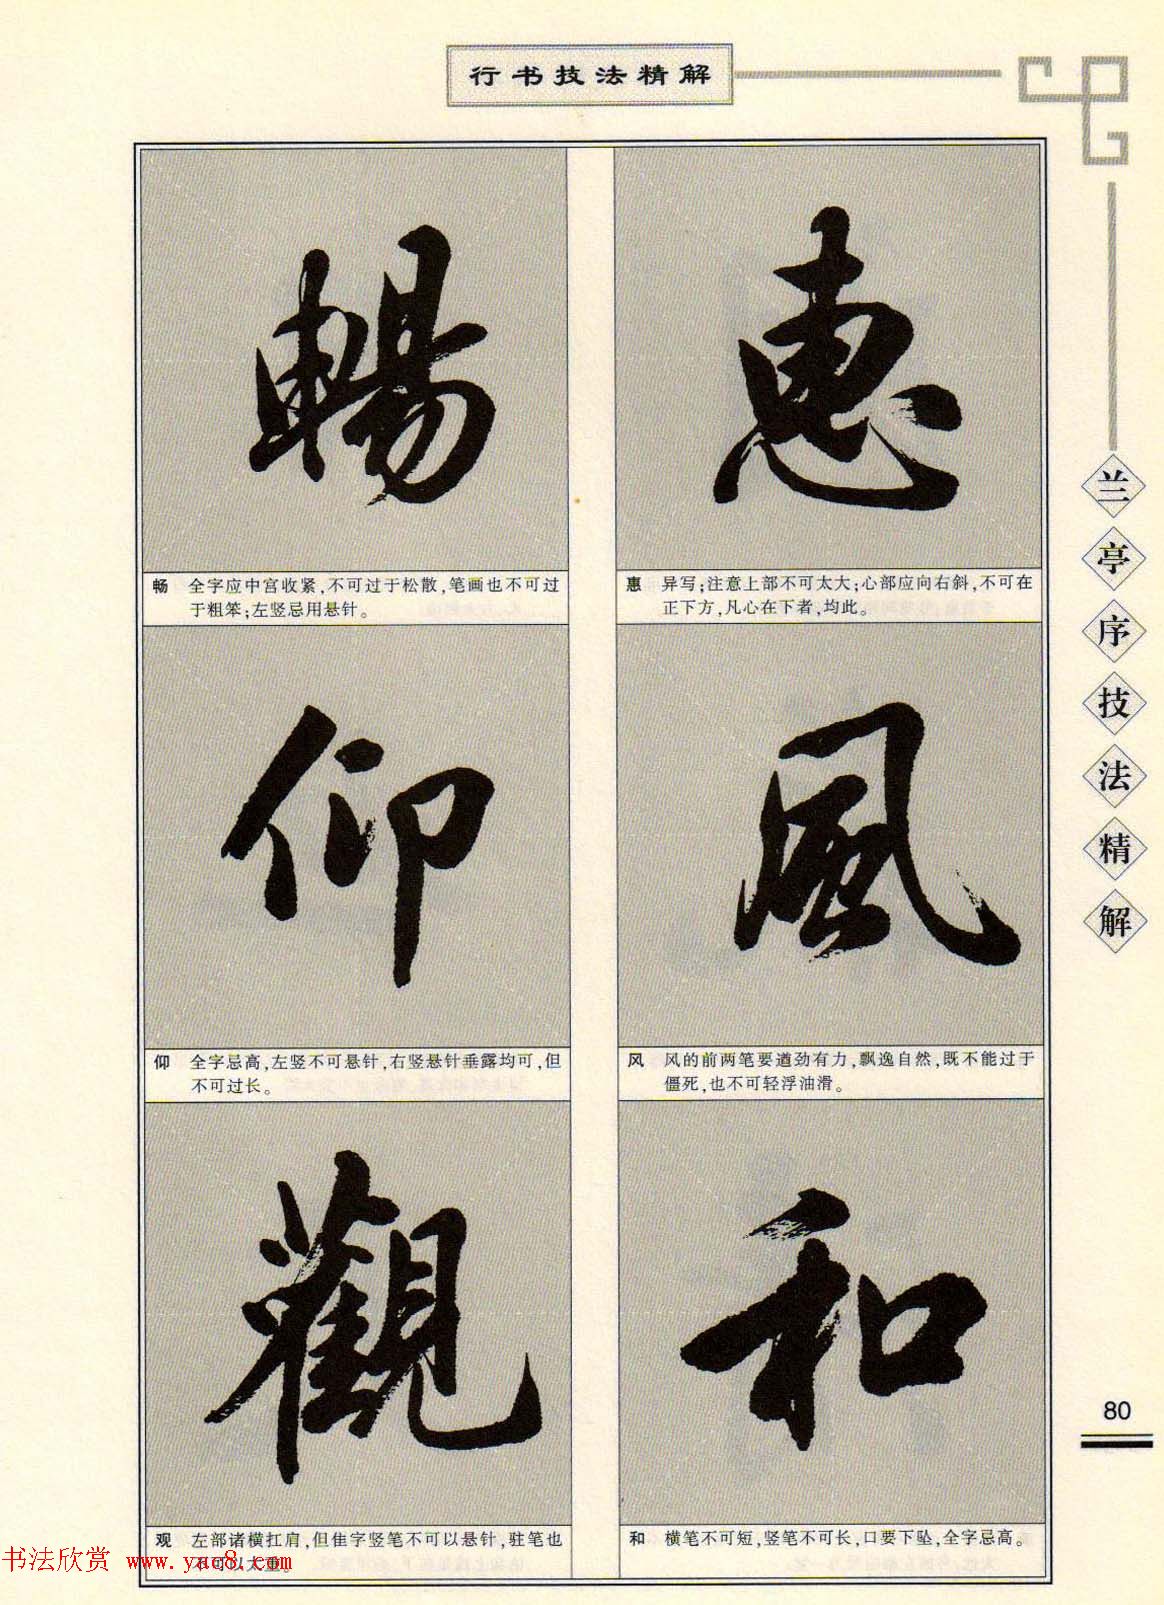 行书技法精解
惠
惠 异写;注意上部不可太大;心部应向右斜,不可在
正下方,凡心在下者,均此。
風
风 风的前两笔要遒劲有力,飘逸自然,既不能过于
僵死,也不可轻浮油滑。
和
和 横笔不可短,竖笔不可长,口要下坠,全字忌高。
暢
畅 全字应中宫收紧,不可过于松散,笔画也不可过
于粗笨;左竖忌用悬针。
仰
仰 全字忌高,左竖不可悬针,右竖悬针垂露均可,但
不可过长。
觀
观 左部诸横扛肩,但隹字竖笔不可以悬针,驻笔也
不可以太重。
兰亭序技法精解
80
书法欣赏 www.yac8.com